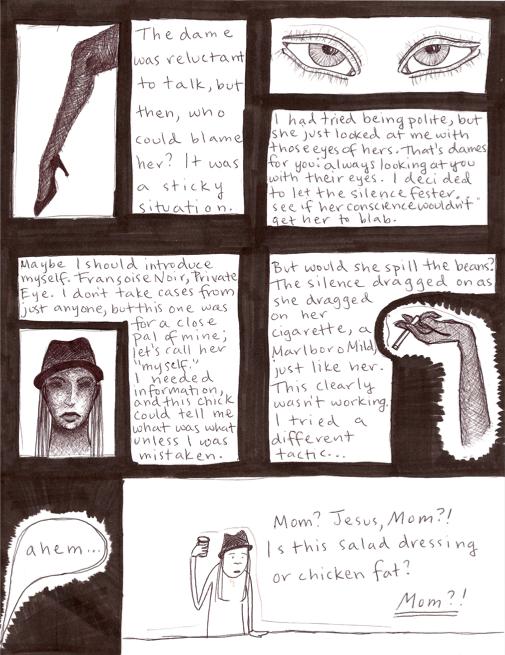 The dame
was reluctant
to talk, but
then, who
could blame
her? It was
a sticky
situation.
I had tried being polite, but
she just looked at me with
those eyes of hers. That's dames
for you: always looking at you
with their eyes. I decided
to let the silence fester,
see if her conscience wouldn't
get her to blab.
Maybe I should introduce
myself. Françoise Noir, Private
Eye. I don't take cases from
just anyone, but this one was
for a close
pal of mine;
let's call her
"myself."
I needed
information,
and this chick
could tell me
what was what
unless I was
mistaken.
But would she spill the beans?
The silence dragged on as
she dragged
on her
cigarette, a
Marlboro Mild,
just like her.
This clearly
wasn't working.
I tried a
different
tactic...
ahem...
Mom? Jesus, Mom?!
Is this salad dressing
or chicken fat?
Mom?!